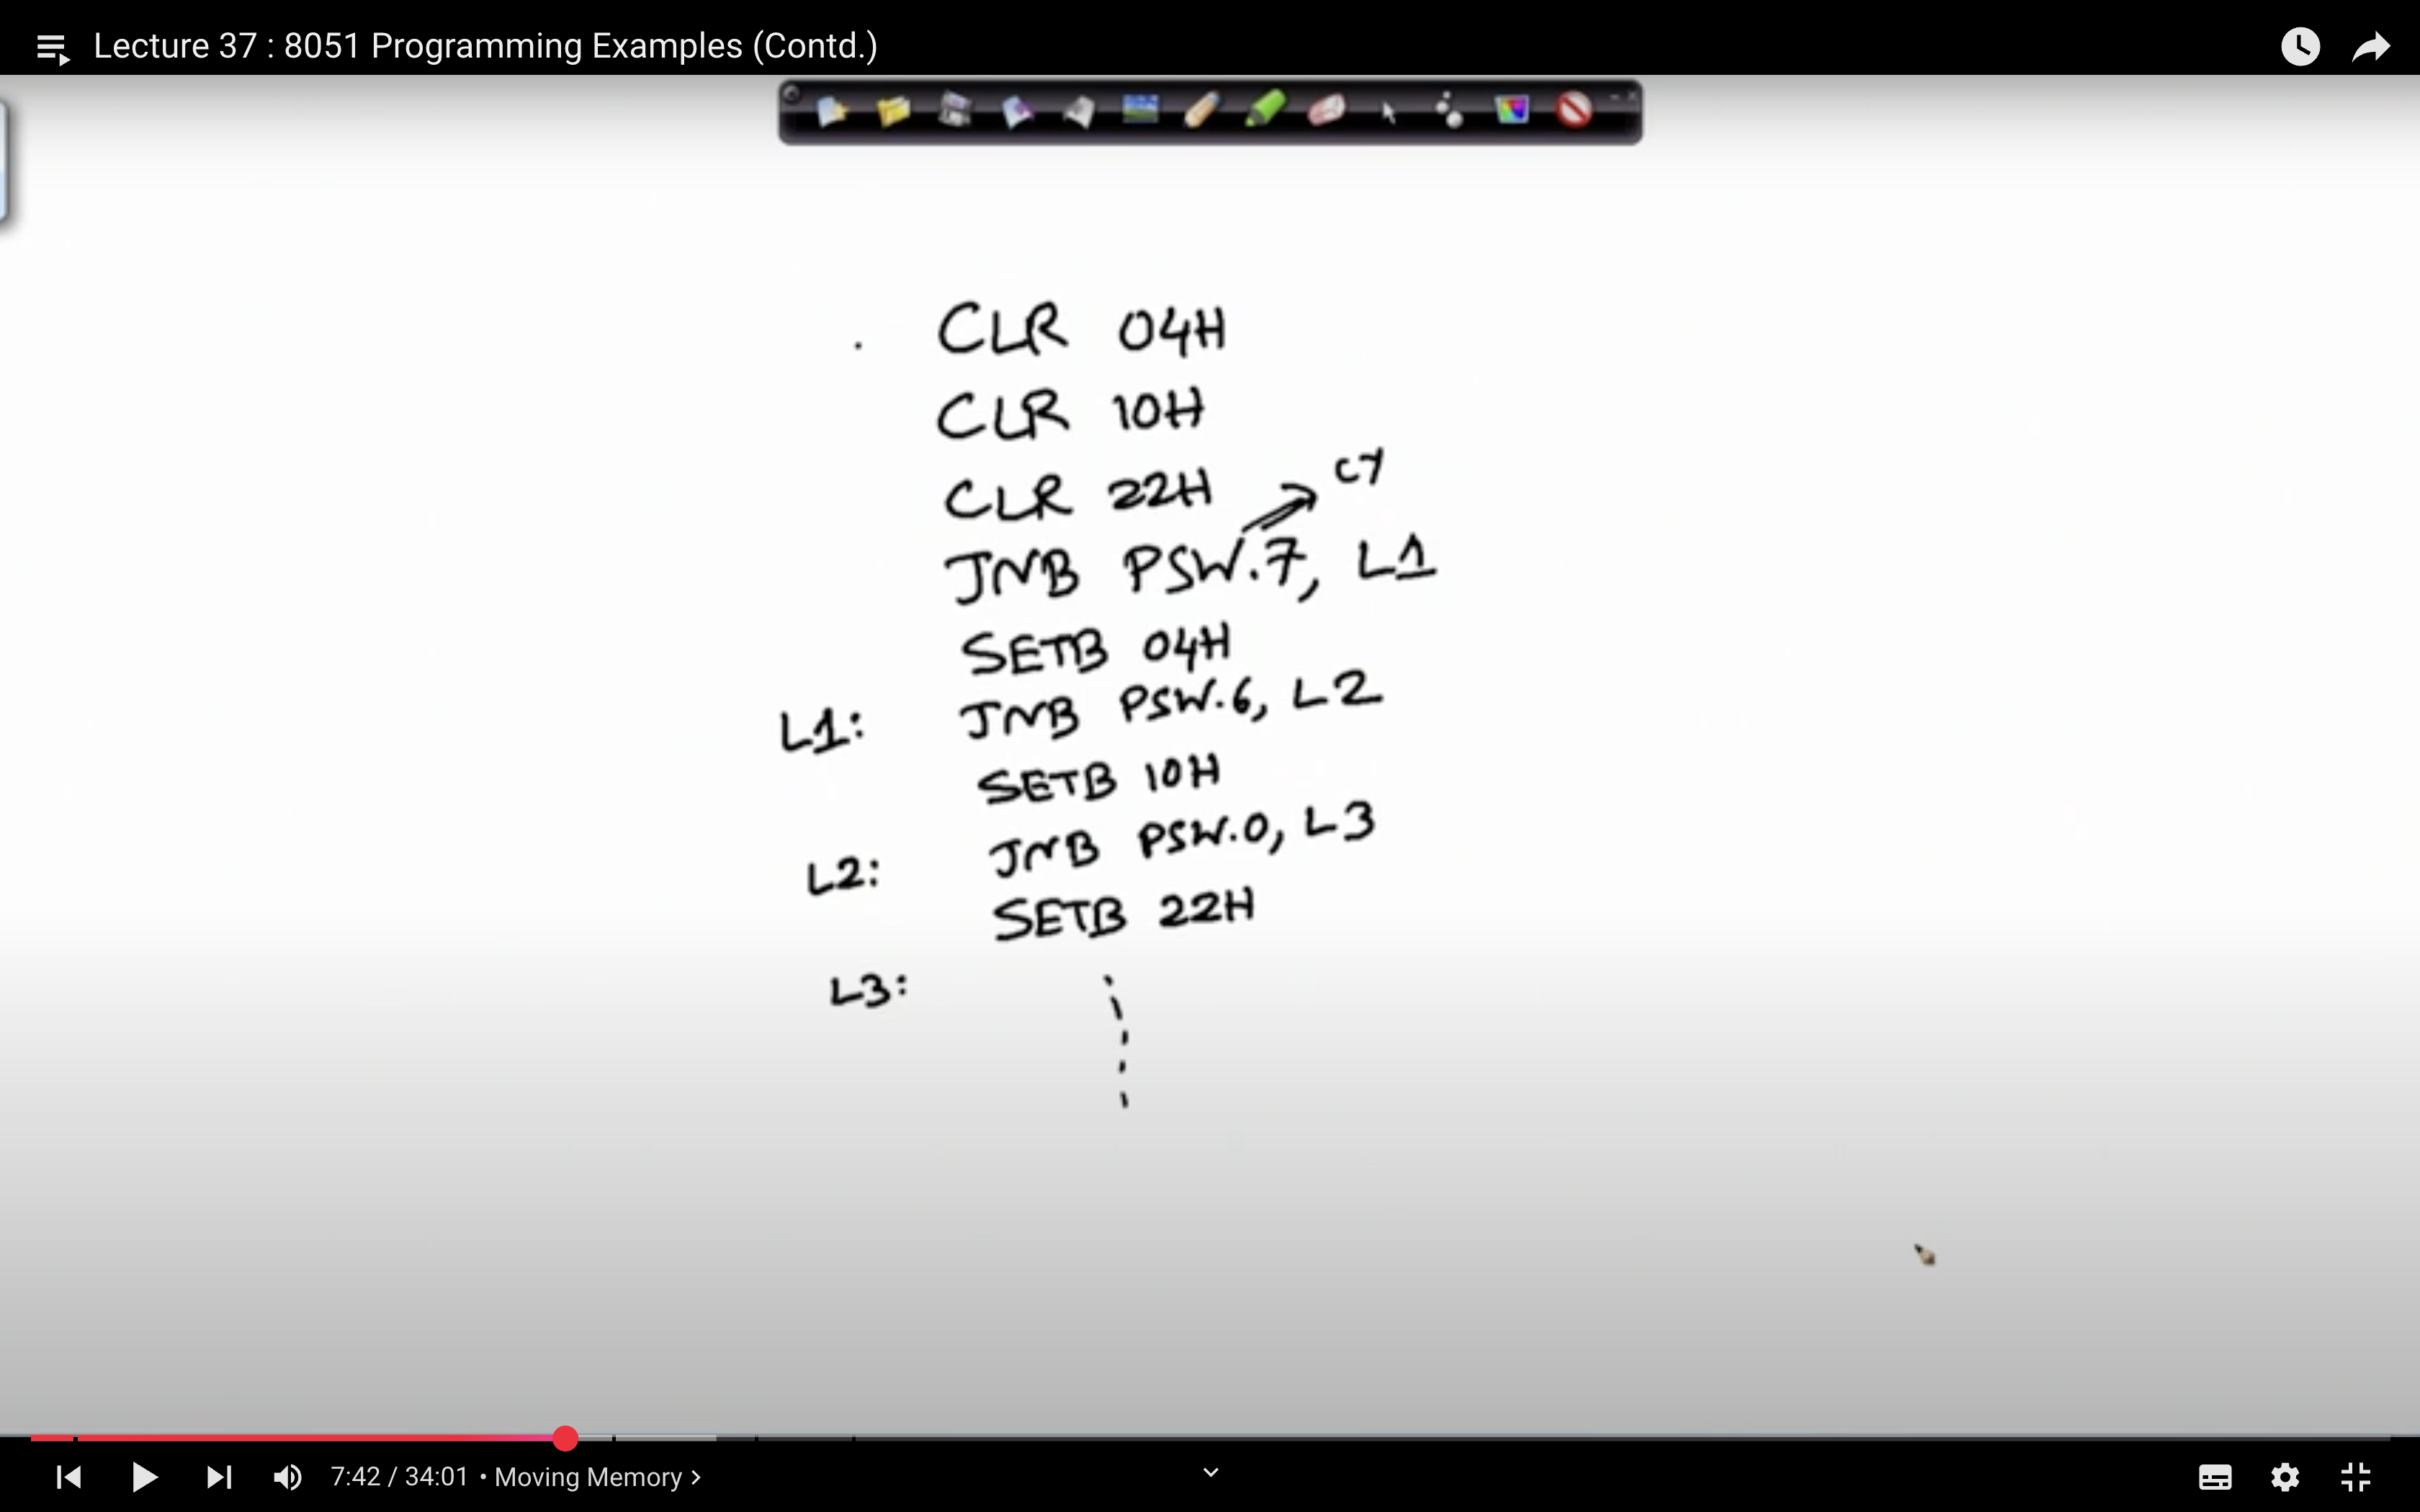 Lecture 37 : 8051 Programming Examples (Contd.)
CLR 04H
CLR 10H
CLR 22H
CY
JNB PSW.7, L1
SETB 04H
L1: JNB PSW.6, L2
SETB 10H
L2: JNB PSW.0, L3
SETB 22H
L3:
7:42 / 34:01 • Moving Memory >